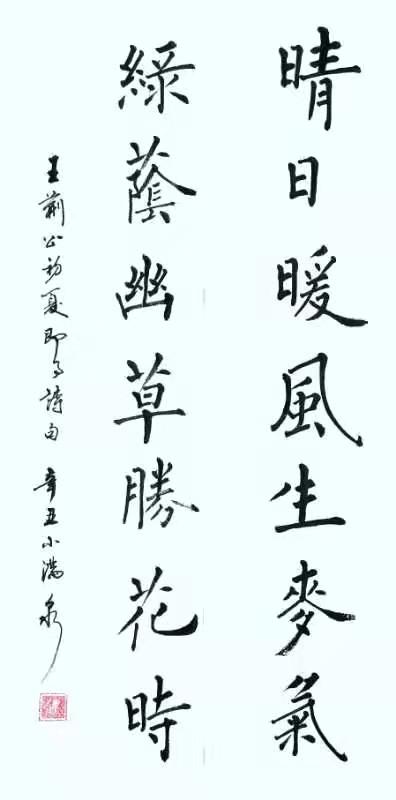 晴日暖風生麥氣
綠蔭幽草勝花時
王荊公初夏即事詩句 辛丑小滿 泉